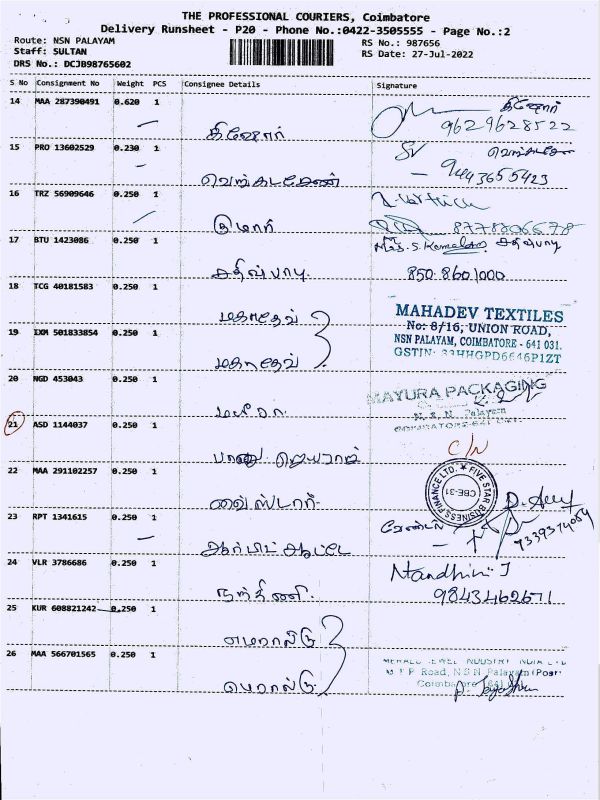 THE PROFESSIONAL COURIERS, Coimbatore
Delivery Runsheet - P20 - Phone No.:0422-3505555 - Page No.:2
Route: NSN PALAYAM
Staff: SULTAN
DRS No.: DCJB98765602
RS No.: 987656
RS Date: 27-Jul-2022
S No Consignment No Weight PCS Consignee Details Signature
14 MAA 287390491 0.620 1
கிஷோர்
கிஷோர்
9629628522
15 PRO 13602529 0.230 1
வெங்கடேசன்
9443655423
16 TRZ 56909646 0.250 1
குமார்
17 BTU 1423086 0.250 1
சதிஷ்பாபு
Mrs. S. Kamalam சதிஷ்பாபு
850 860 1000
18 TCG 40181583 0.250 1
மகாதேவ்
19 IXM 501833854 0.250 1
மகாதேவ்
MAHADEV TEXTILES
No: 8/16, UNION ROAD,
NSN PALAYAM, COIMBATORE - 641 031.
GSTIN: 33HHGPD6646P1ZT
20 NGD 453043 0.250 1
MAYURA PACKAGING
N.S.N. Palayam
21 ASD 1144037 0.250 1
C/N
22 MAA 291102257 0.250 1
வைஸ்டார்
FIVE STAR BUSINESS FINANCE LTD.
CBE-31
23 RPT 1341615 0.250 1
9339374059
24 VLR 3786686 0.250 1
நந்தினி
Nandhini J
9843462671
25 KUR 608821242 0.250 1
எமரால்டு
26 MAA 566701565 0.250 1
எமரால்டு
EMERALD JEWEL INDUSTRY INDIA LTD
M T P Road, N S N Palayam (Post)
Coimbatore 641 031